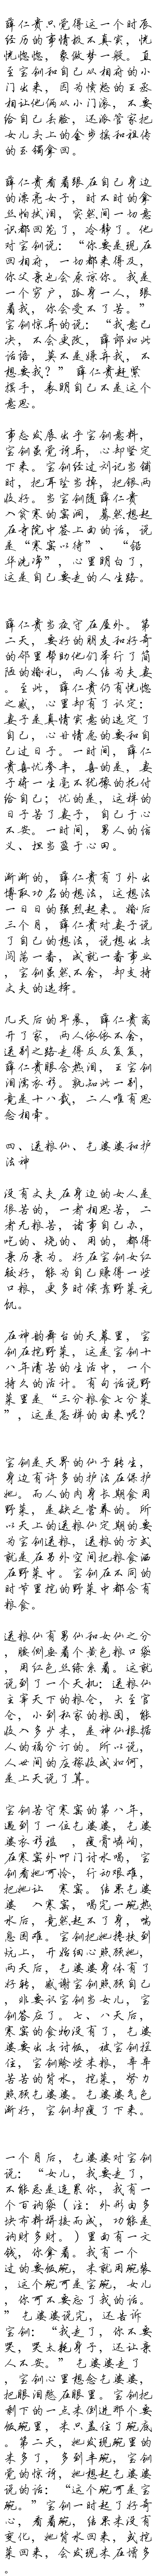 薛仁贵只觉得这一个时辰
经历的事情极不真实，恍
恍惚惚，象做梦一般。直
至宝钏和自己从相府的小
门出来，因为愤怒的王丞
相让他俩从小门滚，不要
给自己丢脸，还派管家把
女儿头上的金步摇和祖传
的玉镯拿回。
薛仁贵看着跟在自己身边
的漂亮女子，时不时的拿
丝帕拭泪，突然间一切意
识都回笼了，冷静了。他
对宝钏说：“你要是现在
回相府，一切都来得及，
你父亲也会原谅你。我是
一个穷户，孤身一人，跟
着我，你会受不了苦。”
宝钏惊异的说：“我意已
决，不会更改，薛郎如此
话语，莫不是嫌弃我，不
想要我？” 薛仁贵赶紧
摆手，表明自己不是这个
意思。
事态发展出乎宝钏意料，
宝钏虽觉诗异，心却坚定
下来。宝钏经过刘记当铺
时，把耳坠当掉，把银两
收好。当宝钏随薛仁贵
入贫寒的窑洞，蓦然想起
在寺院中签上面的话，说
是“寒窑以待”、“铅
华洗净”，心里明白了，
这是自己要走的人生路。
薛仁贵当夜守在屋外。第
二天，要好的朋友和好奇
的邻里帮助他们举行了简
陋的婚礼，两人结为夫妻
。至此，薛仁贵仍有恍惚
之感，心里却有了认定：
妻子是真情实意的选定了
自己，心甘情愿的要和自
己过日子。一时间，薛仁
贵喜忧参半，喜的是，妻
子将一生毫不犹豫的托付
给自己；忧的是，这样的
日子苦了妻子，自己于心
不安。一时间，男人的信
义、担当盈于心田。
渐渐的，薛仁贵有了外出
博取功名的想法，这想法
一日日的强烈起来。婚后
三个月，薛仁贵对妻子说
了自己的想法，说想出去
闯荡一番，成就一番事业
，宝钏虽然不舍，却支持
丈夫的选择。
几天后的早晨，薛仁贵离
开了家，两人依依不舍，
送别之路走得反反复复，
薛仁贵眼含热泪，王宝钏
泪濡衣衫。孰知此一别，
竟是十八载，二人唯有思
念相牵。
四、送粮仙、乞婆婆和护
法神
没有丈夫在身边的女人是
很苦的，一者相思苦，二
者无粮苦，诸事自己办，
吃的、烧的、用的，都得
亲历亲为。好在宝钏女红
极好，能为自己赚得一些
口粮，更多时候靠野菜充
饥。
在神韵舞台的天幕里，宝
钏在挖野菜，这是宝钏十
八年清苦的生活中，一个
持久的活计。有句话说野
菜里是“三分粮食七分菜
”，这是怎样的由来呢？
宝钏是天界的仙子转生，
身边有许多的护法在保护
她。而人的肉身长期食用
野菜，是缺乏营养的。所
以天上的送粮仙定期的要
为宝钏送粮，送粮的方式
就是在另外空间把粮食洒
在野菜中。宝钏在不同的
时节里挖的野菜中都含有
粮食。
送粮仙有男仙和女仙之分
，腰侧要着个黄色粮口袋
，用红色丝绦系着。这就
说到了一个天机：送粮仙
主宰天下的粮仓，大至官
仓，小到私家的粮囤，能
收入多少米，是神仙根据
人的福分订的。所以说，
人世间的庄稼收成如何，
是上天说了算。
宝钏苦守寒窑的第八年，
遇到了一位乞婆婆，乞婆
婆衣衫褴 ，瘦骨嶙峋，
在寒窑外叩门讨水喝，宝
钏看她可怜，行动艰难，
把她让 寒窑。结果乞婆
婆 入寒窑，喝完一碗热
水后，竟然起不了身，喘
息困难。宝钏把她搀扶到
炕上，开始细心照顾她，
两天后，乞婆婆身体有了
好转，感谢宝钏照顾自己
，非要认宝钏当女儿，宝
钏答应了。七、八天后，
寒窑的食物没有了，乞婆
婆要出去讨饭，被宝钏拦
住，宝钏赊些米粮，辛辛
苦苦的背水，挖菜，努力
照顾乞婆婆。乞婆婆气色
渐好，宝钏却瘦了下来。
一个月后，乞婆婆对宝钏
说：“女儿，我要走了，
不能总是连累你，我有一
个百衲袋（注：外形由多
块布料拼接而成，功能是
讷财多财。）里面有一文
钱，你拿着。我有一个
过的要饭碗，来就用碗装
，这个碗可是宝碗，女儿
，你可不要忘了我的话。
” 乞婆婆说完，还告诉
宝钏：“我走了，你不要
哭，哭太耗身子，还让亲
人不安。” 乞婆婆走了
，宝钏心里想念乞婆婆，
把眼泪憋在眼里。宝钏把
剩下的一点米倒进那个要
饭碗里，米只盖住了碗底
。第二天，她发现碗里的
米多了，多到半碗，宝钏
觉的惊讶，她想起乞婆婆
说的话：“这个碗可是宝
碗。”宝钏一时起了好奇
心，看着碗，结果米没有
变化，她背水回来，或挖
菜回来，会发现米在增多
。